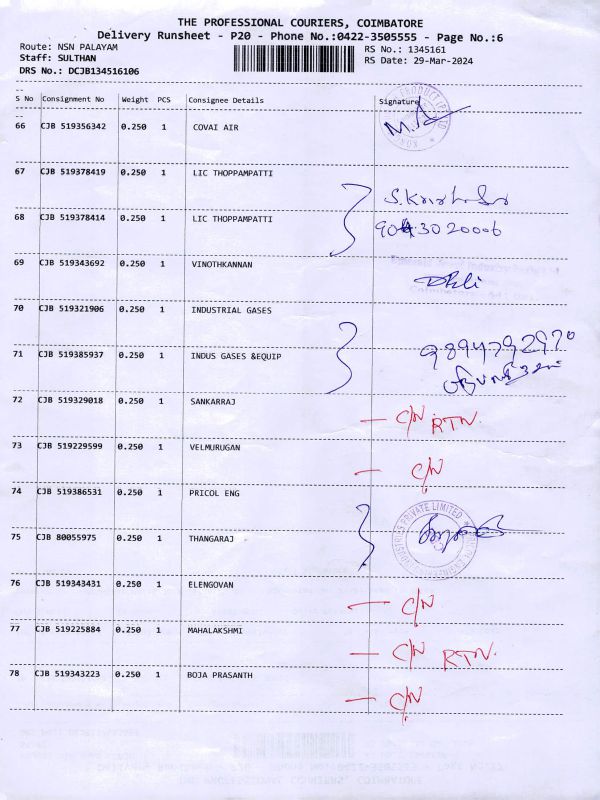 THE PROFESSIONAL COURIERS, COIMBATORE
Delivery Runsheet - P20 - Phone No.:0422-3505555 - Page No.:6
Route: NSN PALAYAM RS No.: 1345161
Staff: SULTHAN RS Date: 29-Mar-2024
DRS No.: DCJB134516106
S No Consignment No Weight PCS Consignee Details Signature
66 CJB 519356342 0.250 1 COVAI AIR
67 CJB 519378419 0.250 1 LIC THOPPAMPATTI
68 CJB 519378414 0.250 1 LIC THOPPAMPATTI 9043020006
69 CJB 519343692 0.250 1 VINOTHKANNAN
70 CJB 519321906 0.250 1 INDUSTRIAL GASES
71 CJB 519385937 0.250 1 INDUS GASES &EQUIP 9894792970
72 CJB 519329018 0.250 1 SANKARRAJ - C/N RTN.
73 CJB 519229599 0.250 1 VELMURUGAN - C/N
74 CJB 519386531 0.250 1 PRICOL ENG
75 CJB 80055975 0.250 1 THANGARAJ
76 CJB 519343431 0.250 1 ELENGOVAN - C/N
77 CJB 519225884 0.250 1 MAHALAKSHMI - C/N RTN.
78 CJB 519343223 0.250 1 BOJA PRASANTH - C/N